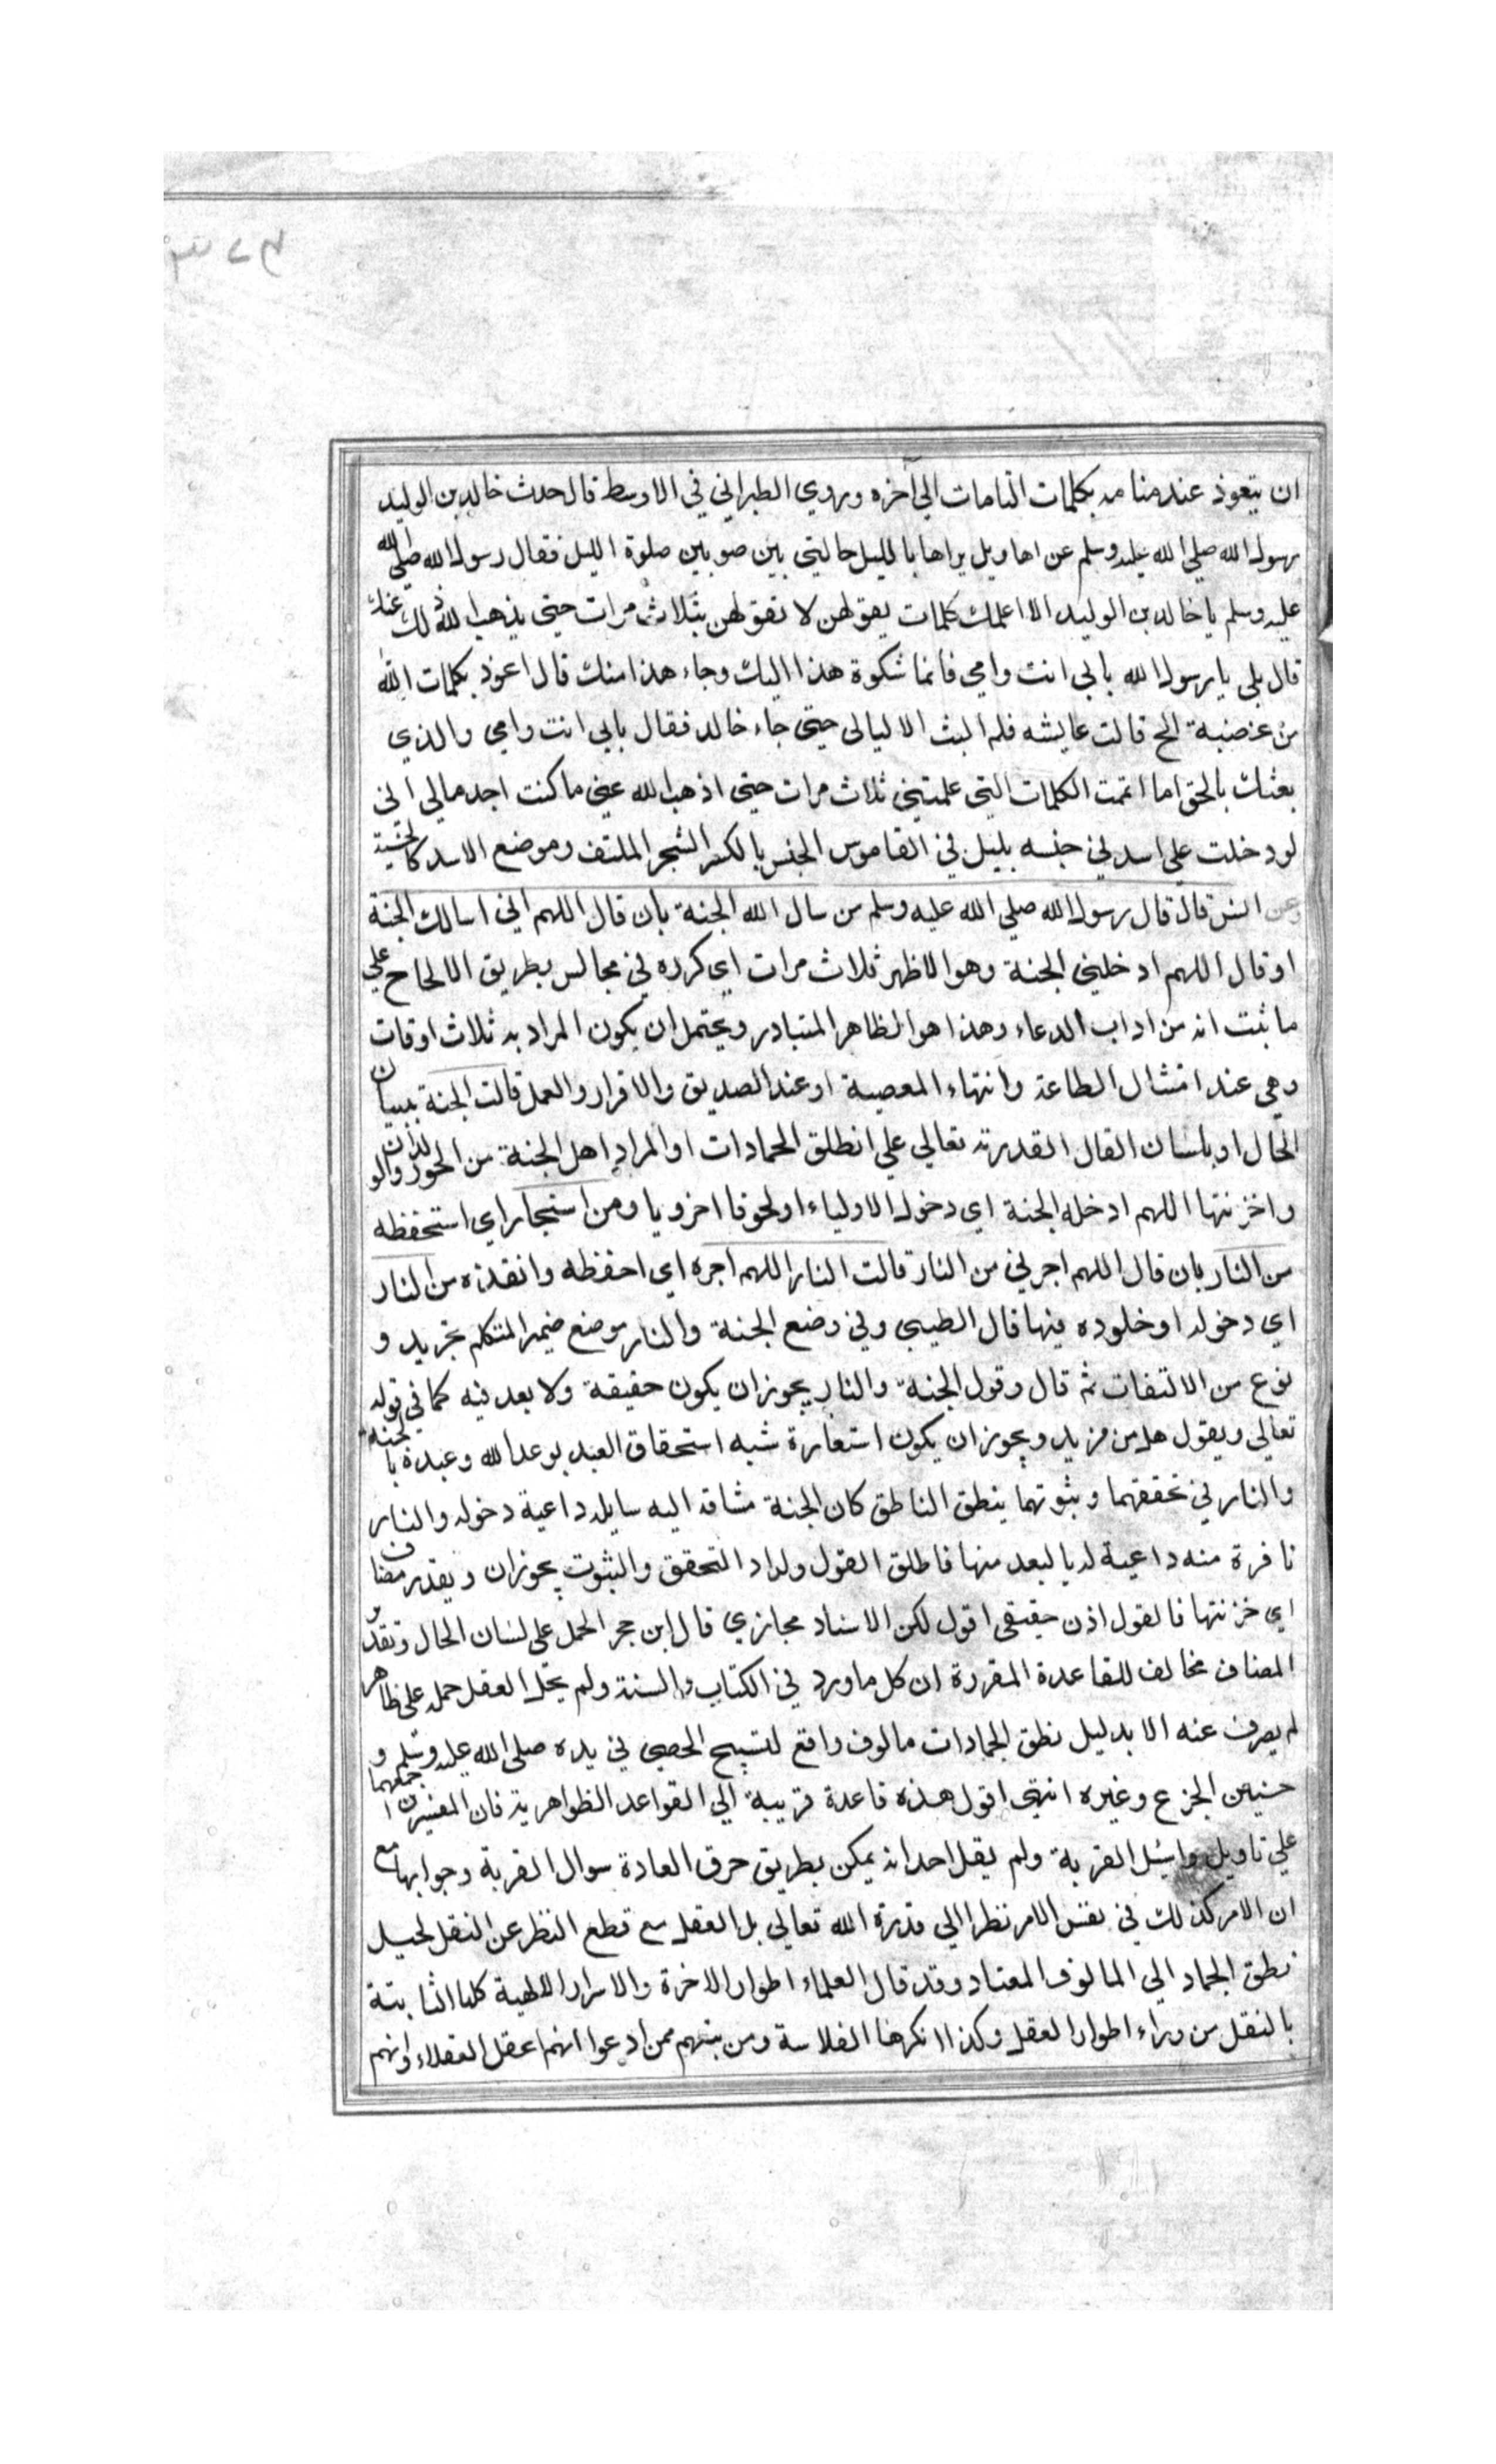 ان يتعوذ عند منامه بكلمات التامات الي آخره وروي الطبراني في الاوسط قال حدث خالد بن الوليد
رسول الله صلي الله عليه وسلم عن اهاويل يراها بالليل حالتي بين صوبين صلوة الليل فقال رسول الله صلي الله
عليه وسلم يا خالد بن الوليد الا اعلمك كلمات يقولهن لا تقولهن بثلاث مرات حتي يذهب الله ذلك عنك
قال بلي يا رسول الله بابي انت وامي فانما شكوة هذا اليك وجاء هذا منك قال اعوذ بكلمات الله
من غضبه الخ قالت عايشه فلم البث الا ليالى حتى جاء خالد فقال بابي انت وامي والذي
بعثك بالحق اما اتممت الكلمات التي علمتني ثلاث مرات حتى اذهب الله عني ما كنت اجد مالي اني
لو دخلت علي اسد في جنسه بليل في القاموس الجنس بالكسر الشجر الملتف وموضع الاسد كالجنسية
وعن انس قال قال رسول الله صلي الله عليه وسلم من سال الله الجنة بان قال اللهم اني اسالك الجنة
او قال اللهم ادخلني الجنة وهو الاظهر ثلاث مرات اي كرره في مجالس بطريق الالحاح علي
ما ثبت انه من اداب الدعاء وهذا هو الظاهر المتبادر ويحتمل ان يكون المراد به ثلاث اوقات
وهي عند امتثال الطاعة وانتهاء المعصية او عند الصديق والاقرار والعمل قالت الجنة ببيان
الحال او بلسان القال القدرته تعالي علي انطلق الجمادات او المراد اهل الجنة من الحور والولدان
واخزنتها اللهم ادخله الجنة اي دخول الاولياء او لحوقا اخرويا ومن استجار اي استحفظه
من النار بان قال اللهم اجرني من النار قالت النار اللهم اجره اي احفظه وانقذه من النار
اي دخوله او خلوده فيها قال الطيبي وفي وضع الجنة والنار موضع ضمير المتكلم تجريد و
نوع من الالتفات ثم قال وقول الجنة والنار يجوز ان يكون حقيقة ولا بعد فيه كما في قوله
تعالي ويقول هل من مزيد ويجوز ان يكون استعارة شبه استحقاق العبد بوعد الله وعيده بالجنة
والنار في تحققهما وثبوتهما ينطق الناطق كان الجنة مشاقه اليه سايله داعية دخوله والنار
نافرة منه داعية له بالبعد منها فاطلق القول ولداد التحقق والثبوت يجوز ان ويقدر مضاف
اي خزنتها فالقول اذن حقيقي اقول لكن الاسناد مجازي قال ابن حجر الحمل علي لسان الحال وتقدير
المضاف مخالف للقاعدة المقررة ان كل ما ورد في الكتاب والسنة ولم يحل العقل حمله علي ظاهر
لم يصرف عنه الا بدليل نطق الجمادات مالوف واقع لتسبيح الحصي في يده صلي الله عليه وسلم و
حنين الجزع وغيره انتهى اقول هذه قاعدة قريبة الي القواعد الظواهرية فان المفسرين اجمعهما
علي تاويل واسئل القرية ولم يقل احد انه يمكن بطريق خرق العادة سوال القرية وجوابها مع
ان الامر كذلك في نفس الامر نظرا الي قدرة الله تعالي بل العقل مع قطع النظر عن النقل لحيل
نطق الجماد الي المالوف المعتاد وقد قال العلماء اطوار الاخرة والاسرار الالهية كلها الثابتة
بالنقل من وراء اطوار العقل وكذا انكرها الفلاسة ومن بتهم ممن ادعوا انهم اعقل العقلاء وانهم